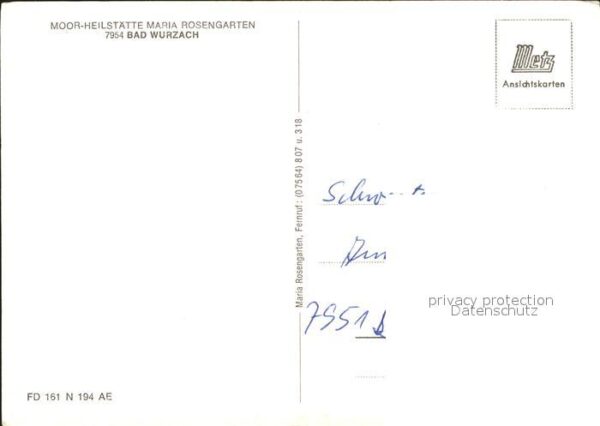 MOOR-HEILSTÄTTE MARIA ROSENGARTEN
7954 BAD WURZACH
Metz
Ansichtskarten
Maria Rosengarten, Feinruf: (07564) 807 u. 318
7951
privacy protection
Datenschutz
FD 161 N 194 AE